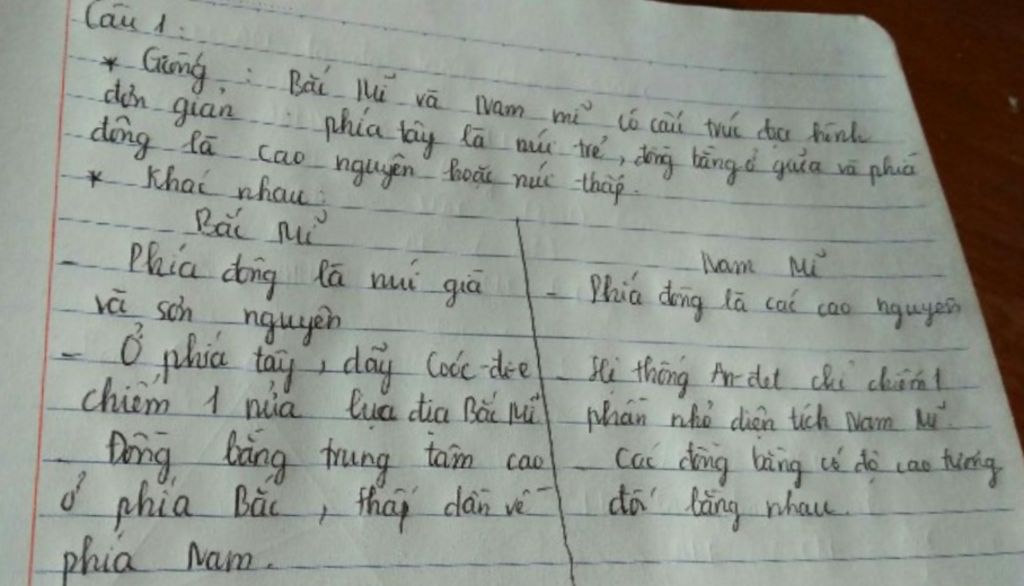 Câu 1:
* Giống: Bắc Mĩ và Nam mĩ có cấu trúc địa hình
đơn giản: phía tây là núi trẻ, đồng bằng ở giữa và phía
đông là cao nguyên hoặc núi thấp.
* Khác nhau:
Bắc Mĩ
- Phía đông là núi già
và sơn nguyên
- Ở phía tây, dãy Cooc-đi-e
chiếm 1 nửa lục địa Bắc Mĩ
- Đồng bằng trung tâm cao
ở phía Bắc, thấp dần về
phía Nam.
Nam Mĩ
- Phía đông là các cao nguyên
- Hệ thống An-det chỉ chiếm 1
phần nhỏ diện tích Nam Mĩ.
- Các đồng bằng có độ cao tương
đối bằng nhau.